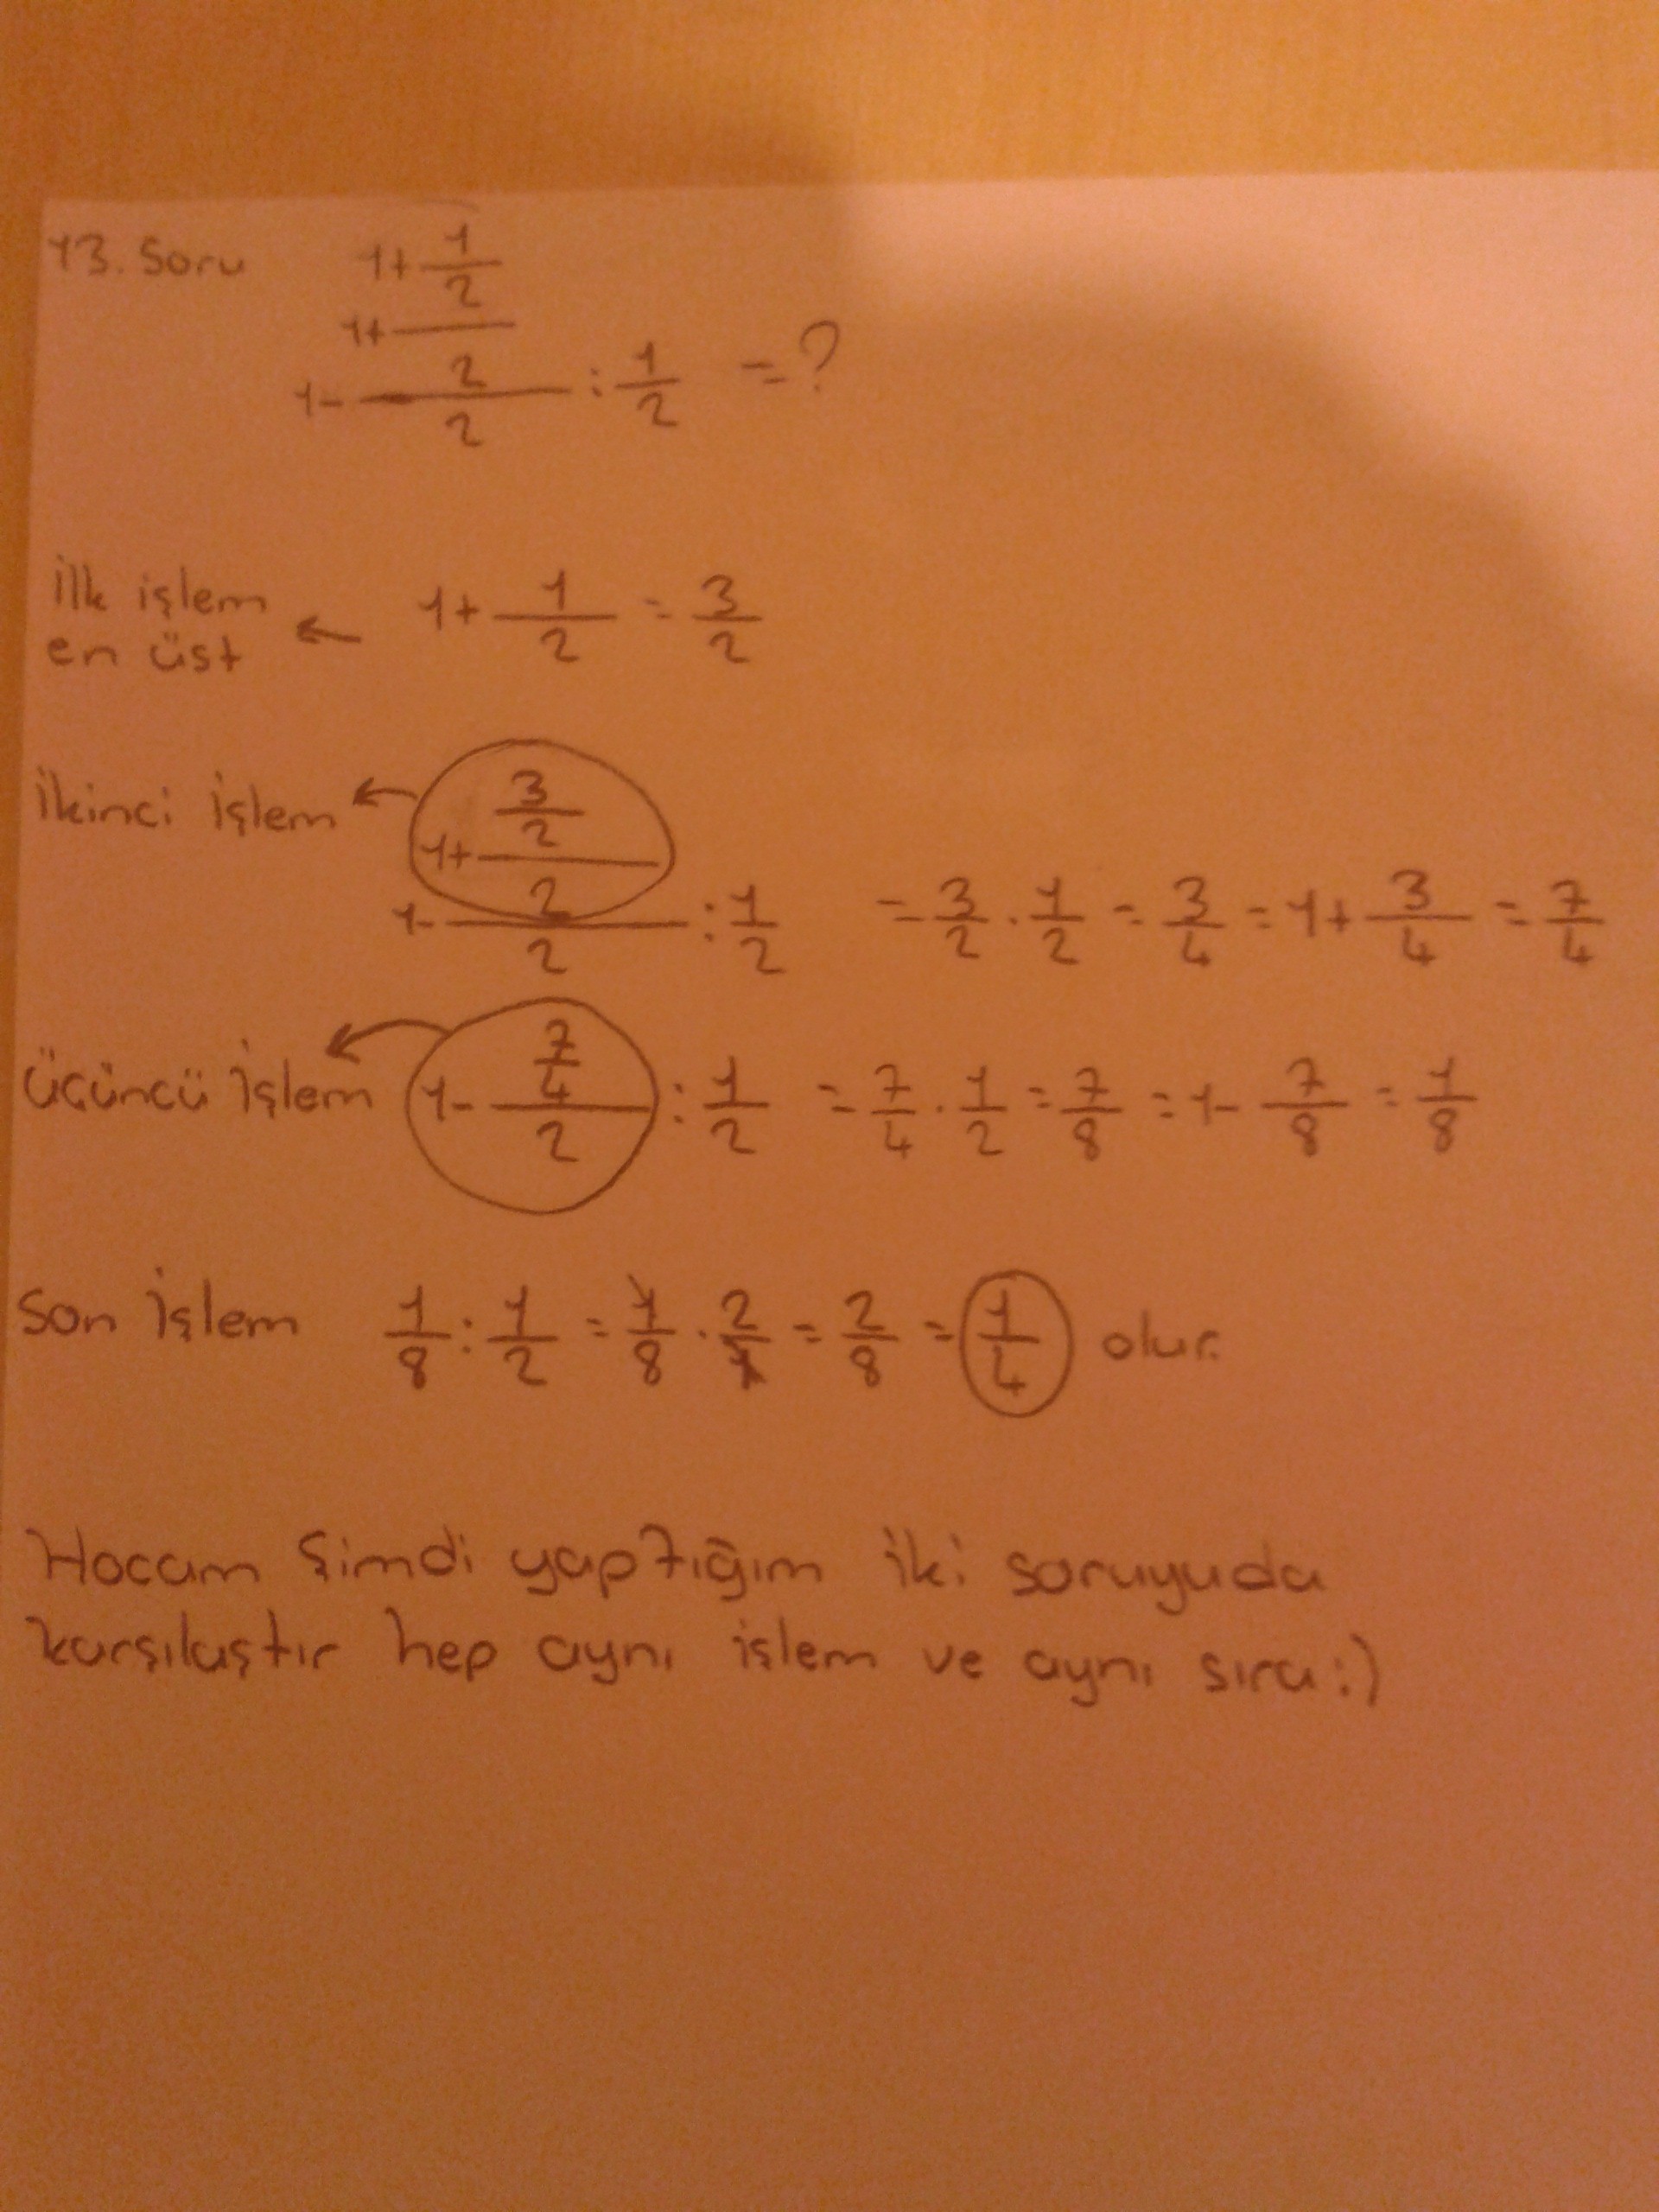 13. Soru
1+ 1/2
1+ ―
2
1- ― : 1/2 = ?
2
İlk işlem en üst ← 1+ 1/2 = 3/2
İkinci işlem ← 3/2
1+ ―
2
1- ― : 1/2 = 3/2 . 1/2 = 3/4 = 1+ 3/4 = 7/4
2
Üçüncü işlem ← 7/4
1- ― : 1/2 = 7/4 . 1/2 = 7/8 = 1- 7/8 = 1/8
2
Son işlem 1/8 : 1/2 = 1/8 . 2/1 = 2/8 = 1/4 olur.
Hocam şimdi yaptığım iki soruyuda
karşılaştır hep aynı işlem ve aynı sıra :)